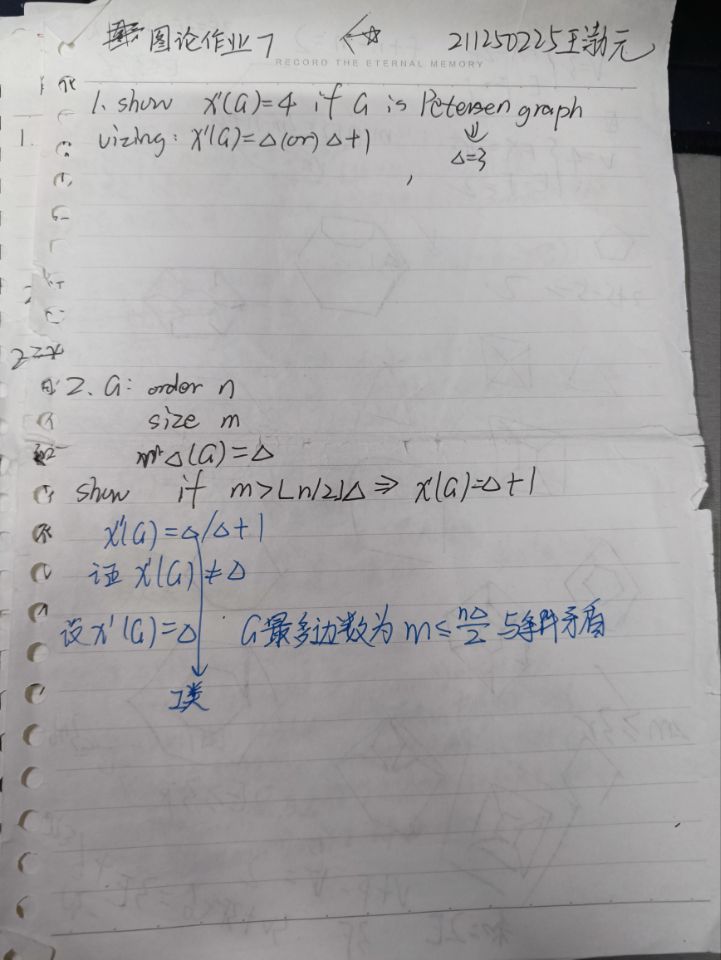 图论作业7 211250225王渤元
RECORD THE ETERNAL MEMORY
1. show χ'(G)=4 if G is Petersen graph
vizing: χ'(G)=Δ(or) Δ+1
Δ=3
1.
2. G: order n
size m
Δ(G)=Δ
show if m>⌊n/2⌋Δ ⇒ χ'(G)=Δ+1
χ'(G)=Δ/Δ+1
证 χ'(G)≠Δ
设χ'(G)=Δ G最多边数为 m≤nΔ/2 与条件矛盾
I类